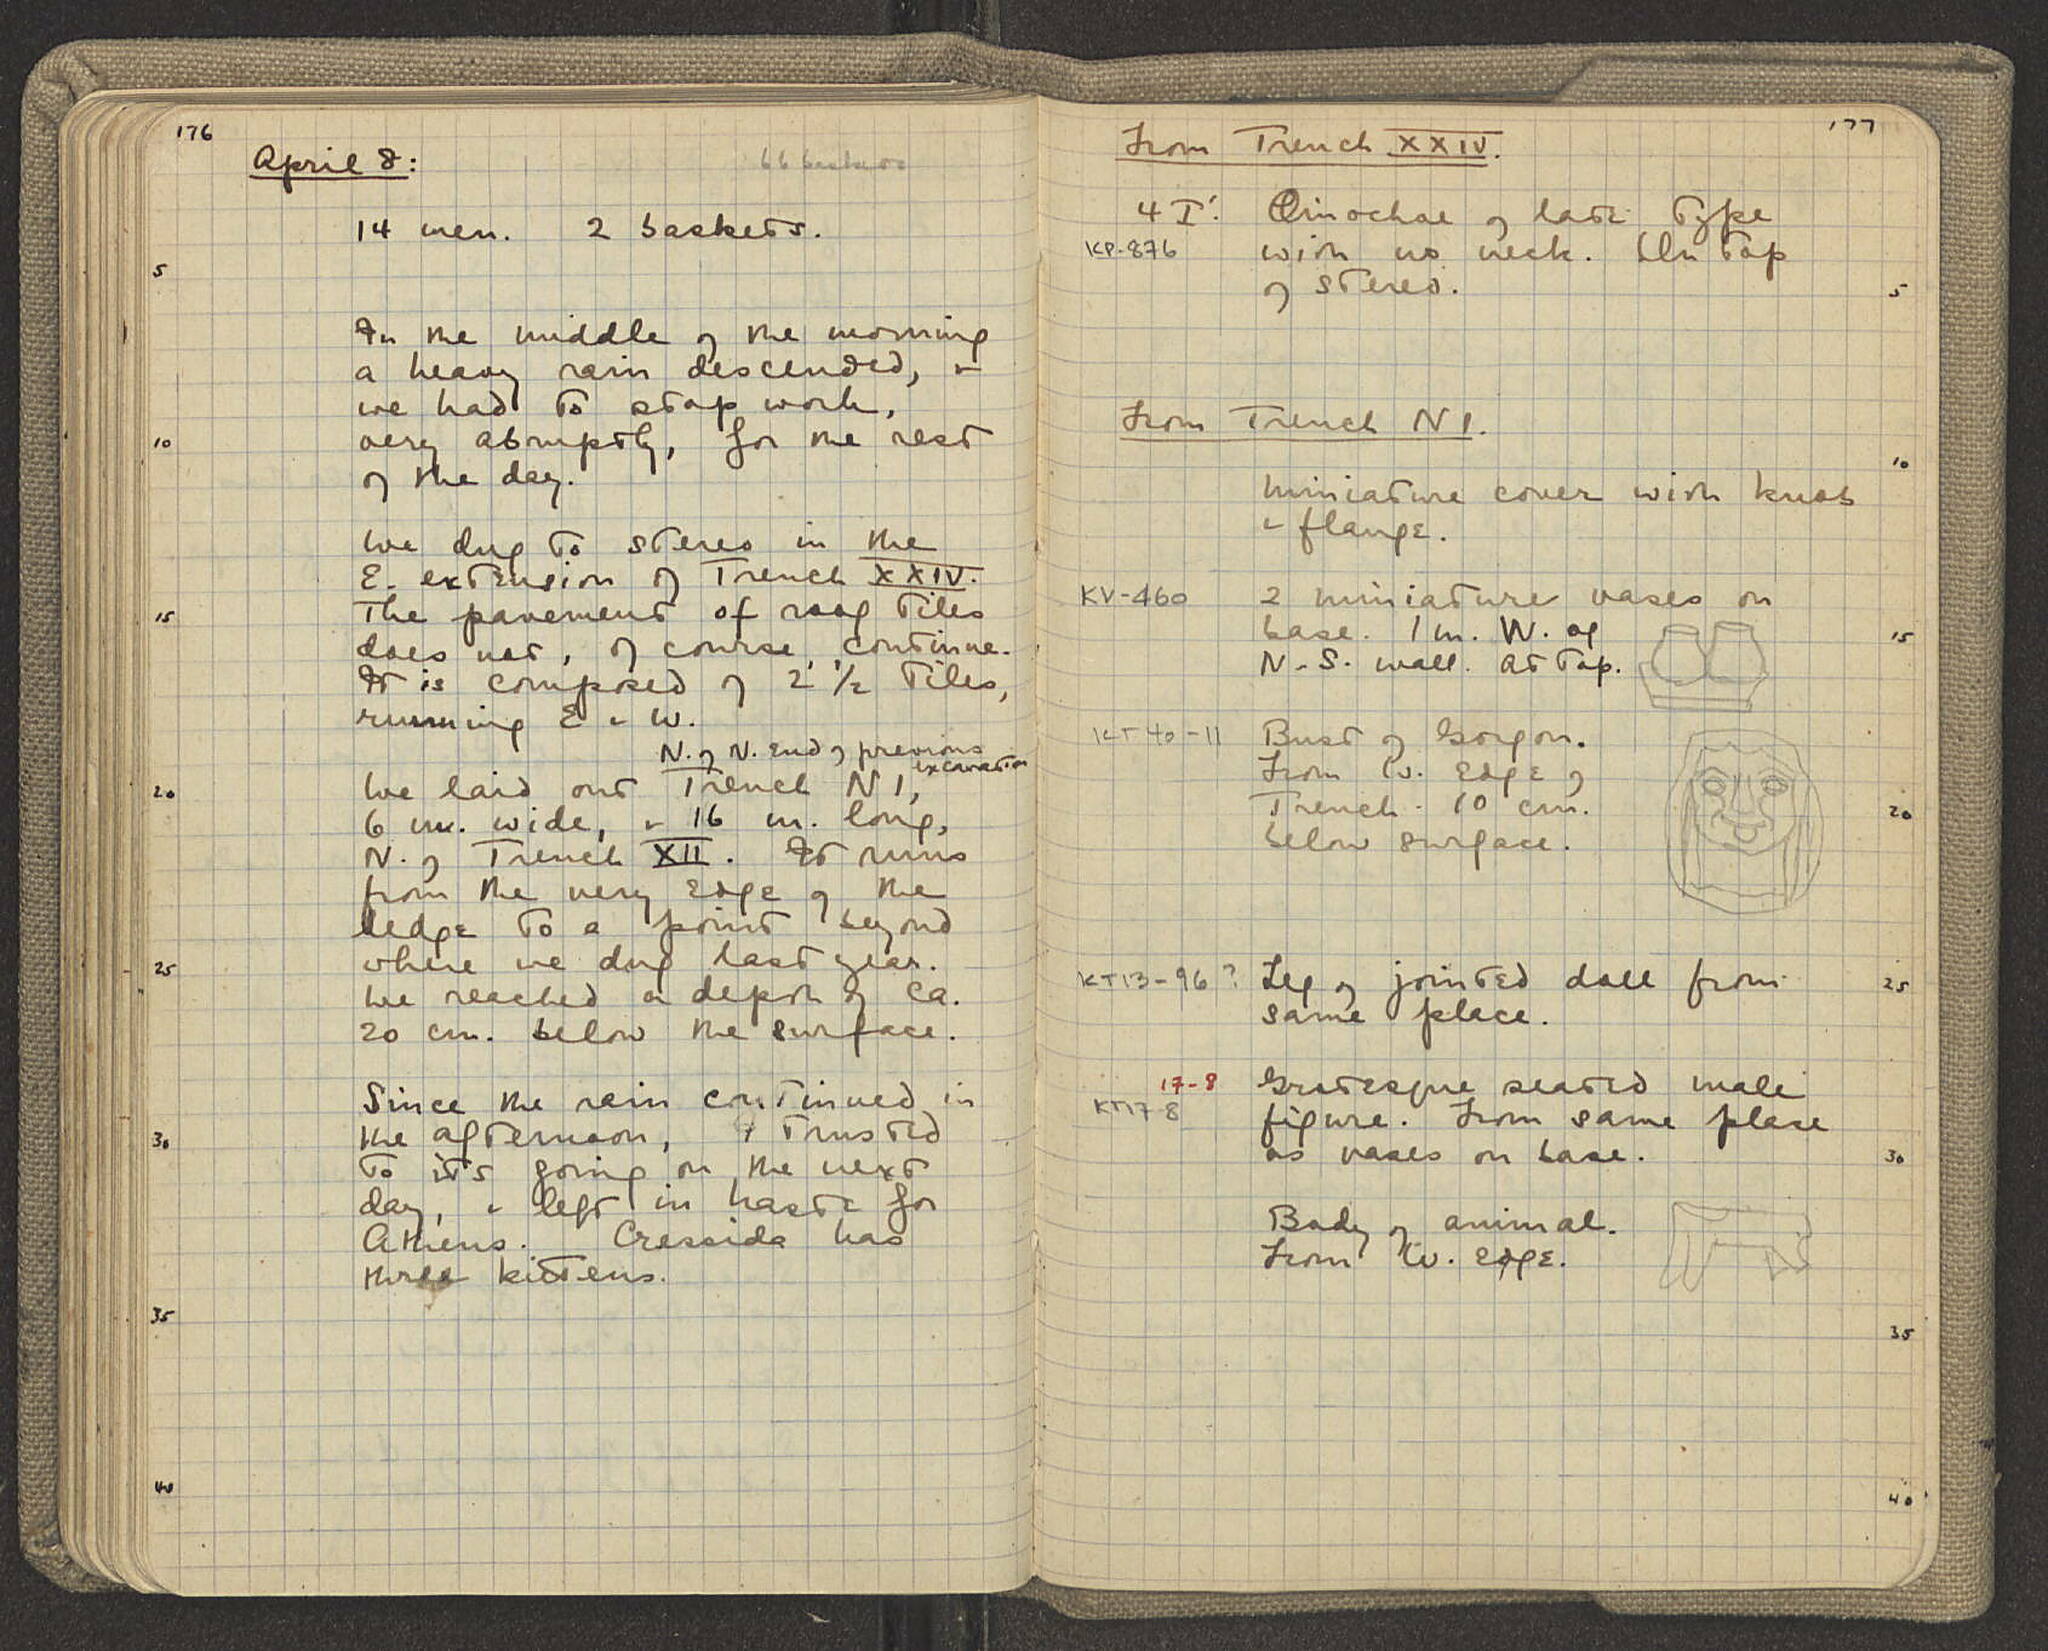 176
April 8:
66 baskets
14 men. 2 baskets.
5
In the middle of the morning
a heavy rain descended, &
we had to stop work,
10 very abruptly, for the rest
of the day.
We dug to stereo in the
E. extension of Trench XXIV.
15 The pavement of roof tiles
does not, of course, continue.
It is composed of 2 1/2 tiles,
running E & W.
N. of N. End of previous
excavation
20 We laid out Trench N 1,
6 m. wide, & 16 m. long,
N. of Trench XII. It runs
from the very edge of the
ledge to a point beyond
25 where we dug last year.
We reached a depth of ca.
20 cm. below the surface.
Since the rain continued in
30 the afternoon, I trusted
to its going on the next
day, & left in haste for
Athens. Cressida has
three kittens.
35
40
177
From Trench XXIV.
4 I: Oinochoe of late type
KP-876 with no neck. On top
of stereo. 5
From Trench N 1.
10
Miniature cover with knob
& flange.
KV-460 2 miniature vases on
base. 1 m. W. of 15
N-S. wall. At top.
KT 40-11 Bust of Gorgon.
From W. edge of
Trench. 10 cm. 20
below surface.
KT13-96? Leg of jointed doll from 25
same place.
17-8 Grotesque seated male
KT17-8 figure. From same place
as vases on base. 30
Body of animal.
From W. edge.
35
40